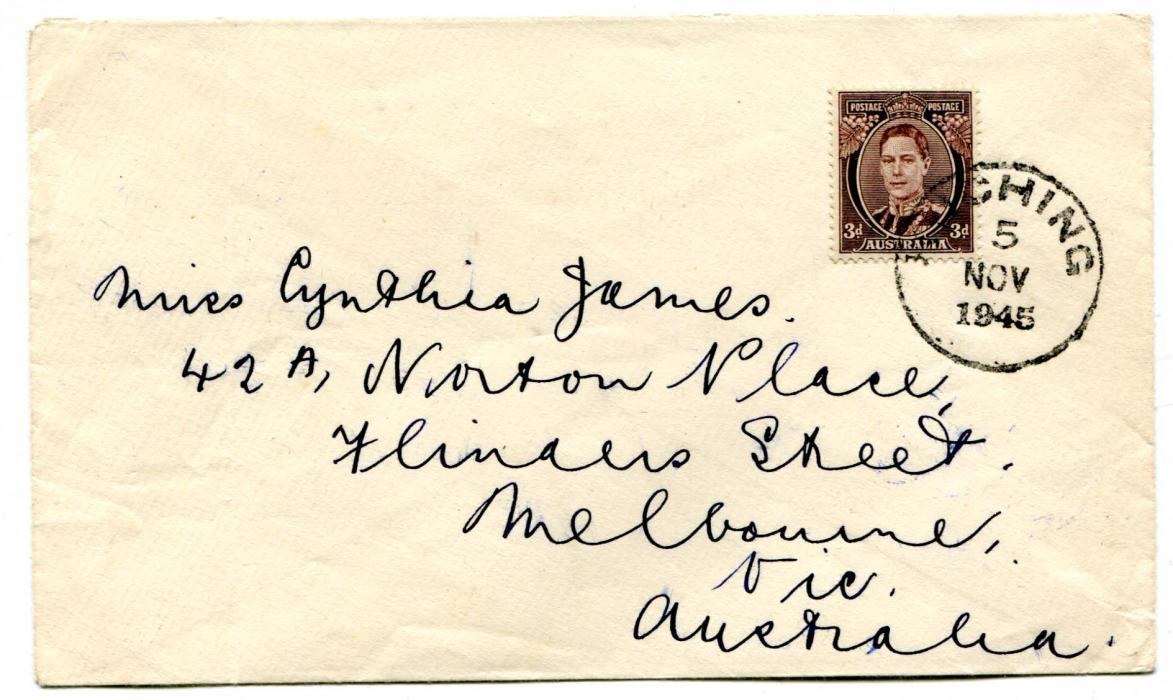 POSTAGE POSTAGE
3d 3d
AUSTRALIA
5
NOV
1945
Miss Cynthia James.
42A, Norton Place,
Flinders Street.
Melbourne,
Vic.
Australia.